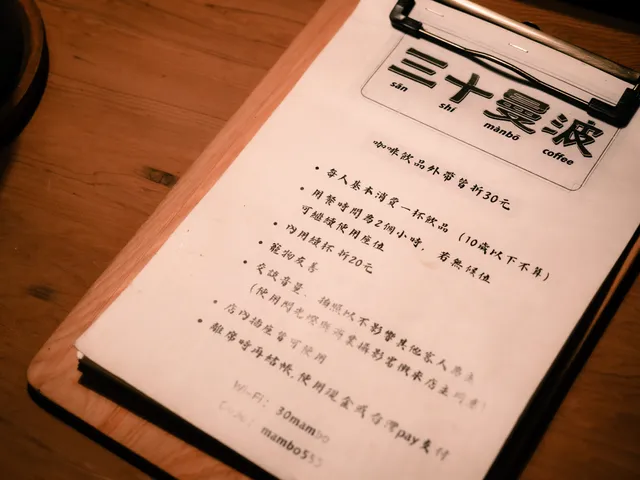 三十曼波
sān shí mànbō coffee
咖啡飲品外帶皆折30元
• 每人基本消費一杯飲品 (10歲以下不算)
• 用餐時間為2個小時, 若無候位
可繼續使用座位
• 內用續杯 折20元
• 寵物友善
• 交談音量、拍照以不影響其他客人為主
(使用閃光燈與商業攝影需徵求店主同意)
• 店內插座皆可使用
• 離席時再結帳,使用現金或台灣pay支付
Wi-Fi: 30mambo
mambo555